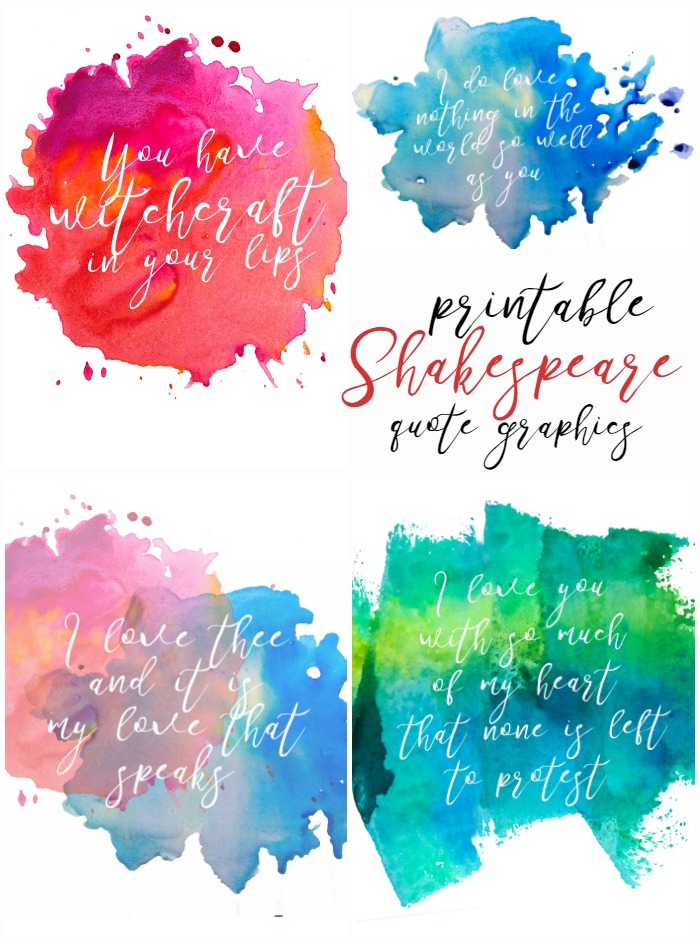 You have
witchcraft
in your lips
I do love
nothing in the
world so well
as you
printable
Shakespeare
quote graphics
I love thee
and it is
my love that
speaks
I love you
with so much
of my heart
that none is left
to protest